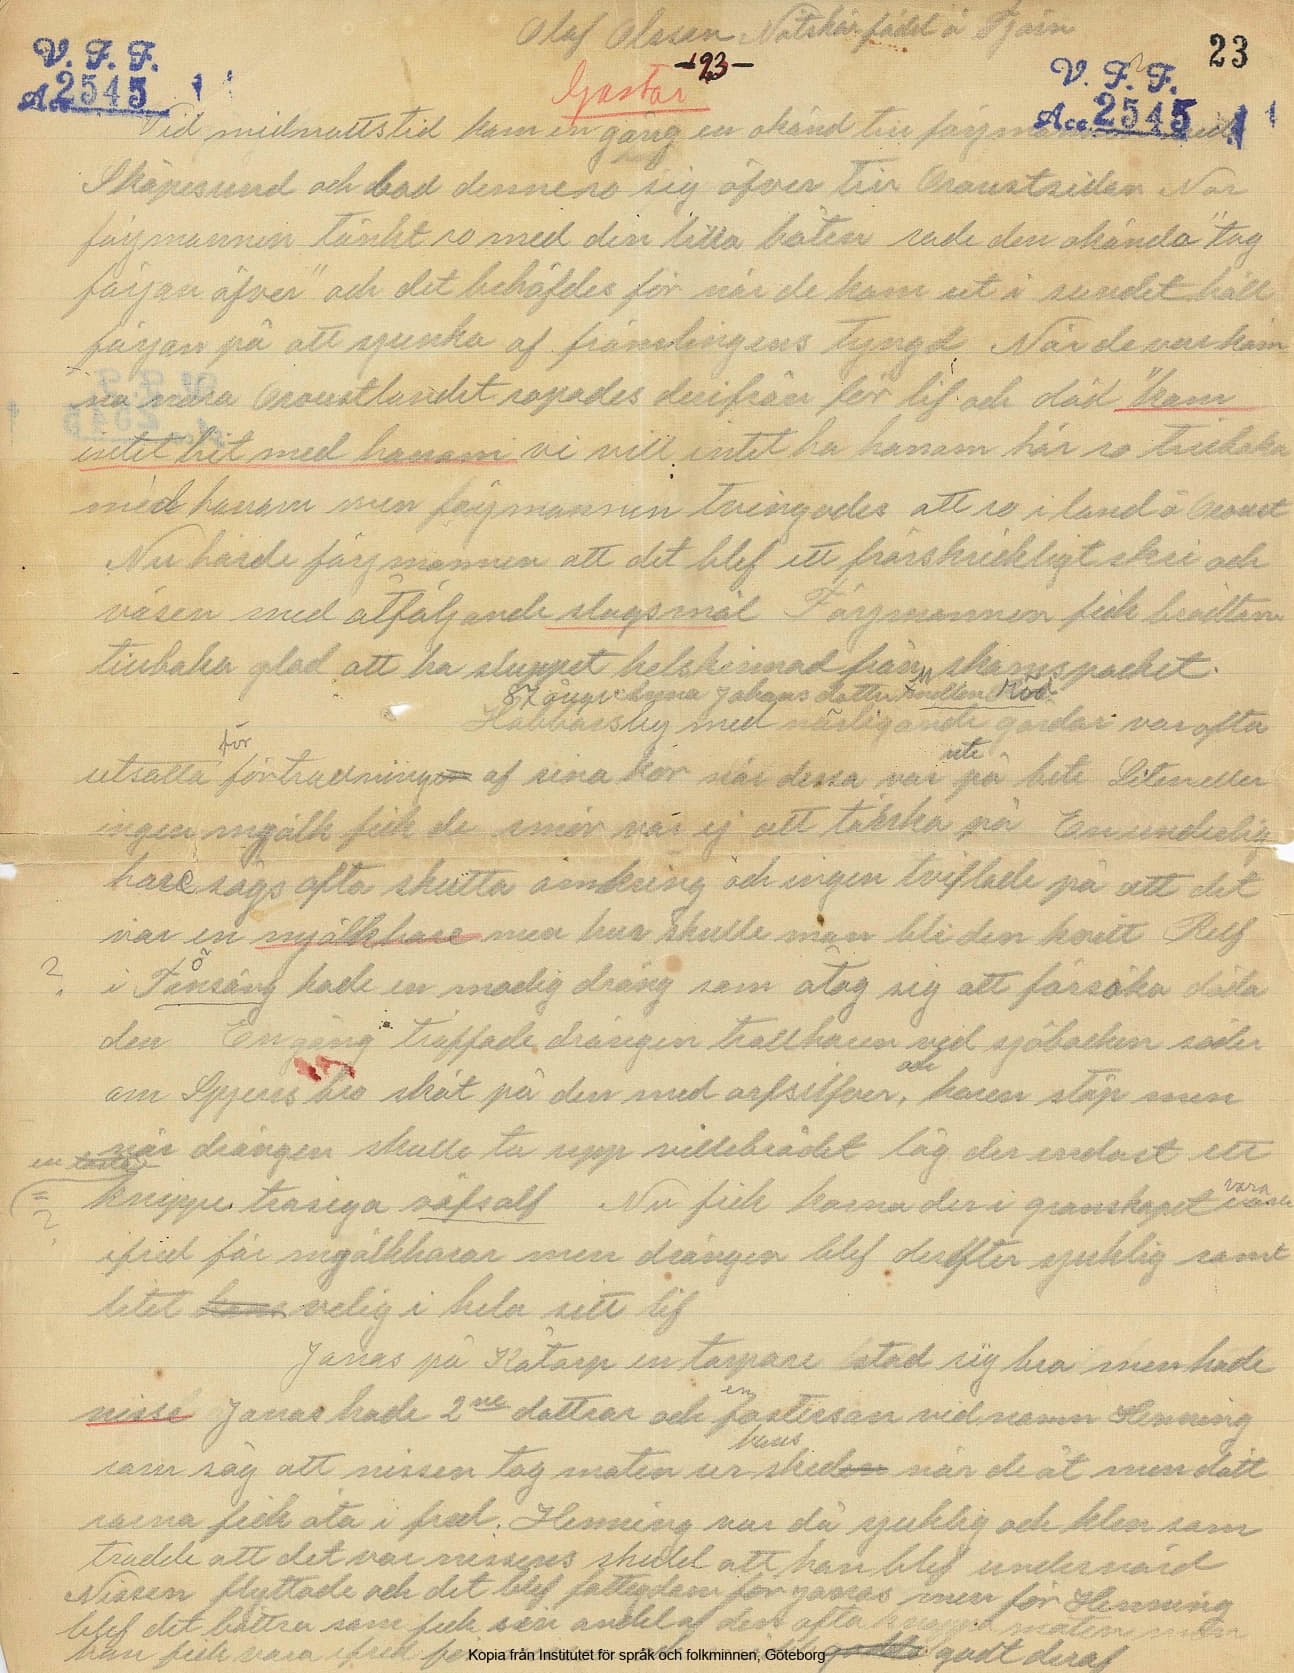 Olaf Olasan Nötskär född å Tjörn
V. F. F.
Acc 2545 1
-23-
23
V. F. F.
Acc. 2545 . 1 1
Gastar
Vid midnattstid kom en gång en okänd till färjmannen ved
Skåpesund och bad denne ro sig öfver till Oroustsidan När
färjmannen tänkt ro med din lilla båten sade den okända "tag
färjan öfver" och det behöfdes för när de kom ut i sundet höll
färjan på att sjunka af främlingens tyngd När de var kom
na nära Oroustlandet ropades derifrån för lif och död "kom
intet hit med honom vi vill intet ha honom här ro tillbaka
med honom men färjmannen tvingades att ro i land å Oroust
Nu hörde färjmannen att det blef ett förskräckligt skri och
väsen med åtföljande slagsmål Färjmannen fick bråttom
tillbaka glad att ha sluppet helskinnad från skamspacket.
87 årige Anna Johans dotter mellan Röd
Habbarsby med närligande gårdar var ofta
utsatta för förtrudninga af sina kor när dessa var ute på bete Liten eller
ingen mjölk fick de smör var ej att tänka på En underlig
hare sågs ofta skutta omkring och ingen tviflade på att det
var en mjölkhare men hur skulle man bli den kvitt Rolf
? i Tansäng hade en modig dräng som åtog sig att försöka döda
den En gång träffade drängen trollharen ved sjöbacken söder
om Spjers bro sköt på den med arfsilfver, och haren stöp men
när drängen skulle ta upp villebrådet låg der endast ett
en
knippe trasiga ? Nu fick korna der i granskapet vara
ifred för mjölkharar men drängen blef derefter sjuklig samt
litet velig i hela sitt lif
Jonas på Kåtorp en torpare stod sig bra men hade
nisse Jonas hade 2ne döttrar och en fosterson ved namn Henning
som såg att nissen tog maten ur hans sked när de åt men dött
rarna fick äta i fred. Henning var då sjuklig och klen som
trodde att det var nissens skuld att han blef undernärd
Nissen flyttade och det blef fattigdom för Jonas men för Henning
blef det bättre som fick sin andel af den ofta knappa maten men
han fick vara ifred för godt deraf
Kopia från Institutet för språk och folkminnen, Göteborg